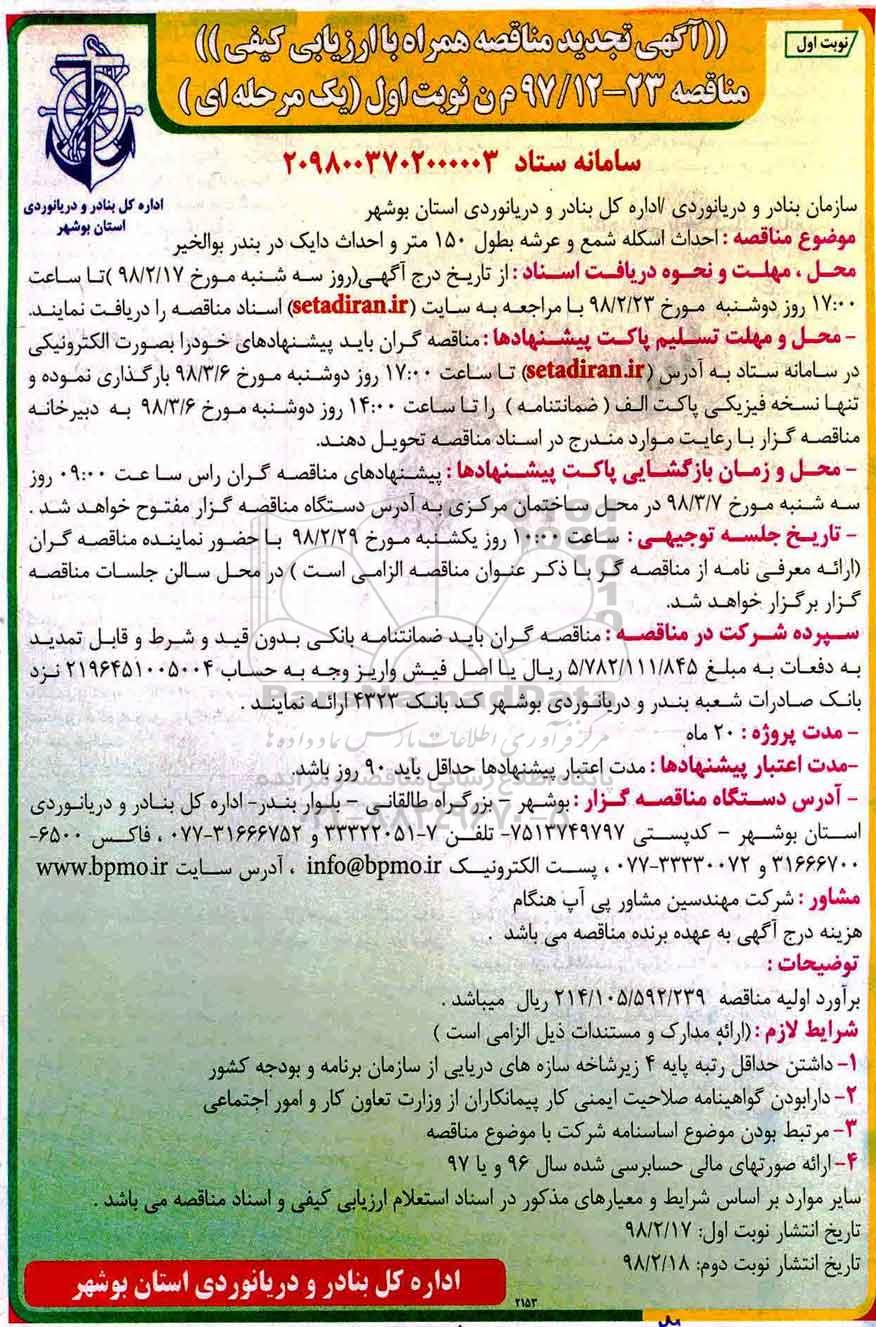 نوبت اول
((آگهی تجدید مناقصه همراه با ارزیابی کیفی))
مناقصه ۲۳-۹۷/۱۲ م ن نوبت اول (یک مرحله ای)
اداره کل بنادر و دریانوردی
استان بوشهر
سامانه ستاد ۲۰۹۸۰۰۳۷۰۲۰۰۰۰۰۳
سازمان بنادر و دریانوردی /اداره کل بنادر و دریانوردی استان بوشهر
موضوع مناقصه : احداث اسکله شمع و عرشه بطول ۱۵۰ متر و احداث دایک در بندر بوالخیر
محل ، مهلت و نحوه دریافت اسناد : از تاریخ درج آگهی(روز سه شنبه مورخ ۹۸/۲/۱۷ )تا ساعت
۱۷:۰۰ روز دوشنبه مورخ ۹۸/۲/۲۳ با مراجعه به سایت (setadiran.ir) اسناد مناقصه را دریافت نمایند.
- محل و مهلت تسلیم پاکت پیشنهادها : مناقصه گران باید پیشنهادهای خودرا بصورت الکترونیکی
در سامانه ستاد به آدرس (setadiran.ir) تا ساعت ۱۷:۰۰ روز دوشنبه مورخ ۹۸/۳/۶ بارگذاری نموده و
تنها نسخه فیزیکی پاکت الف ( ضمانتنامه ) را تا ساعت ۱۴:۰۰ روز دوشنبه مورخ ۹۸/۳/۶ به دبیرخانه
مناقصه گزار با رعایت موارد مندرج در اسناد مناقصه تحویل دهند.
- محل و زمان بازگشایی پاکت پیشنهادها : پیشنهادهای مناقصه گران راس ساعت ۰۹:۰۰ روز
سه شنبه مورخ ۹۸/۳/۷ در محل ساختمان مرکزی به آدرس دستگاه مناقصه گزار مفتوح خواهد شد .
- تاریخ جلسه توجیهی : ساعت ۱۰:۰۰ روز یکشنبه مورخ ۹۸/۲/۲۹ با حضور نماینده مناقصه گران
(ارائه معرفی نامه از مناقصه گر با ذکر عنوان مناقصه الزامی است ) در محل سالن جلسات مناقصه
گزار برگزار خواهد شد.
سپرده شرکت در مناقصه : مناقصه گران باید ضمانتنامه بانکی بدون قید و شرط و قابل تمدید
به دفعات به مبلغ ۵/۷۸۲/۱۱۱/۸۴۵ ریال یا اصل فیش واریز وجه به حساب ۲۱۹۶۴۵۱۰۰۵۰۰۴ نزد
بانک صادرات شعبه بندر و دریانوردی بوشهر کد بانک ۴۳۲۳ ارائه نمایند .
- مدت پروژه : ۲۰ ماه
-مدت اعتبار پیشنهادها : مدت اعتبار پیشنهادها حداقل باید ۹۰ روز باشد.
- آدرس دستگاه مناقصه گزار : بوشهر - بزرگراه طالقانی - بلوار بندر- اداره کل بنادر و دریانوردی
استان بوشهر - کدپستی ۷۵۱۳۷۴۹۷۹۷- تلفن ۷-۳۳۳۲۲۰۵۱ و ۳۱۶۶۶۷۵۲-۰۷۷ ، فاکس ۶۵۰۰-
۳۱۶۶۶۷۰۰ و ۳۳۳۳۰۰۷۲-۰۷۷ ، پست الکترونیک info@bpmo.ir ، آدرس سایت www.bpmo.ir
مشاور : شرکت مهندسین مشاور پی آب هنگام
هزینه درج آگهی به عهده برنده مناقصه می باشد .
توضیحات :
برآورد اولیه مناقصه ۲۱۴/۱۰۵/۵۹۲/۲۳۹ ریال میباشد .
شرایط لازم : (ارائه مدارک و مستندات ذیل الزامی است )
۱- داشتن حداقل رتبه پایه ۴ زیرشاخه سازه های دریایی از سازمان برنامه و بودجه کشور
۲- دارابودن گواهینامه صلاحیت ایمنی کار پیمانکاران از وزارت تعاون کار و امور اجتماعی
۳- مرتبط بودن موضوع اساسنامه شرکت با موضوع مناقصه
۴- ارائه صورتهای مالی حسابرسی شده سال ۹۶ و یا ۹۷
سایر موارد بر اساس شرایط و معیارهای مذکور در اسناد استعلام ارزیابی کیفی و اسناد مناقصه می باشد .
تاریخ انتشار نوبت اول: ۹۸/۲/۱۷
تاریخ انتشار نوبت دوم: ۹۸/۲/۱۸
اداره کل بنادر و دریانوردی استان بوشهر
۲۱۵۳